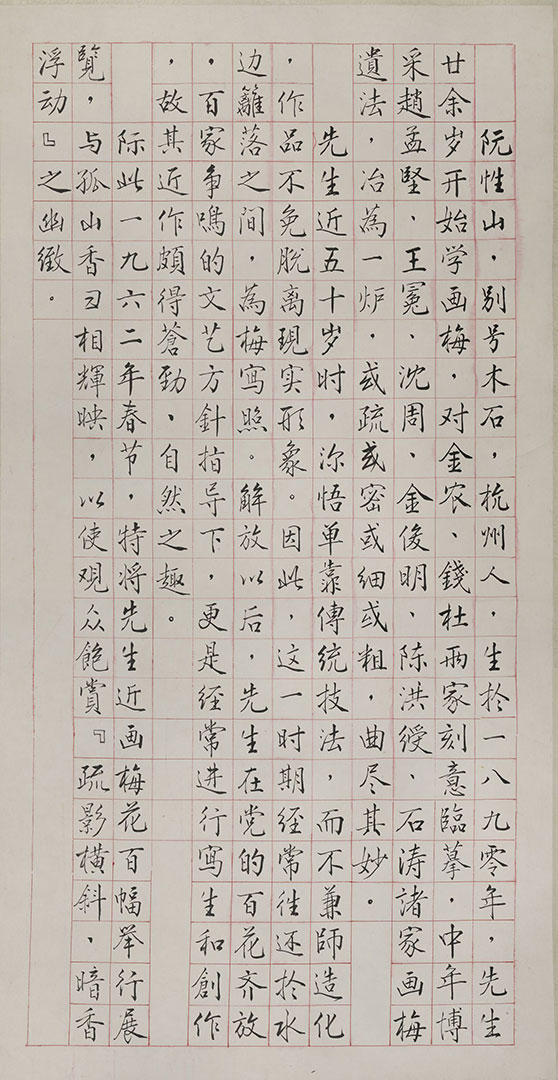 阮性山，别号木石，杭州人，生於一八九零年，先生
廿余岁开始学画梅，对金农、錢杜兩家刻意臨摹，中年博
采趙孟堅、王冕、沈周、金俊明、陈洪绶、石涛諸家画梅
遺法，冶為一炉，或疏或密或细或粗，曲尽其妙。
先生近五十岁时，深悟单靠傳统技法，而不兼師造化
，作品不免脱离現实形象。因此，这一时期经常往还於水
边籬落之间，為梅寫照。解放以后，先生在党的百花齐放
，百家争鳴的文艺方針指导下，更是经常进行寫生和創作
，故其近作頗得蒼劲、自然之趣。
际此一九六二年春节，特将先生近画梅花百幅举行展
覽，与孤山香雪相輝映，以使观众飽賞『疏影横斜，暗香
浮动』之幽緻。